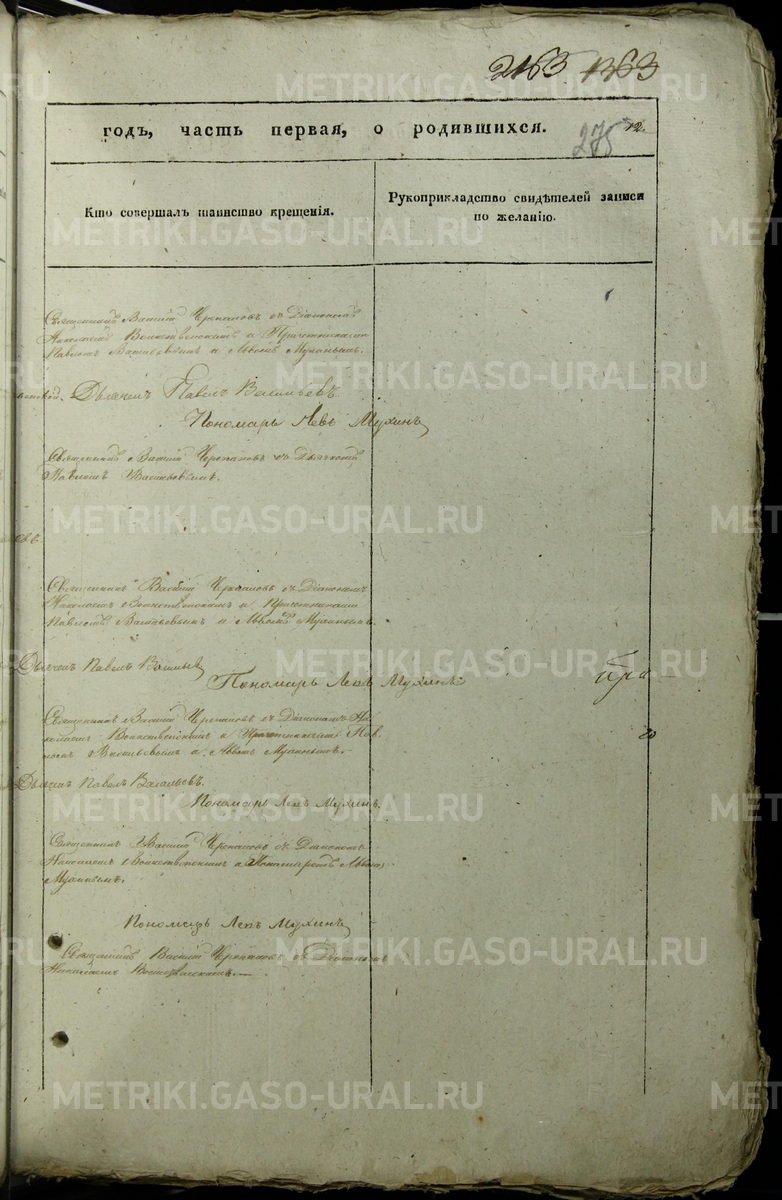 2163 1363
годъ, часть первая, о родившихся.
275
12.
Кто совершалъ таинство крещенія.
Рукоприкладство свидѣтелей записи
по желанію.
Священникъ Василій Черепановъ съ Діакономъ
Николаемъ Воинственскимъ и Причетниками
Павломъ Васильевымъ и Львомъ Мухинымъ.
Дьячекъ Павелъ Васильевъ
Пономарь Левъ Мухинъ
Священникъ Василій Черепановъ съ Дьячкомъ
Павломъ Васильевымъ.
Священникъ Василій Черепановъ съ Діакономъ
Николаемъ Воинственскимъ и Причетниками
Павломъ Васильевымъ и Львомъ Мухинымъ.
Дьячекъ Павелъ Васильевъ
Пономарь Левъ Мухинъ
Священникъ Василій Черепановъ съ Діакономъ Ни
колаемъ Воинственскимъ и Причетниками Пав
ломъ Васильевымъ и Львомъ Мухинымъ.
20
Дьячекъ Павелъ Васильевъ.
Пономарь Левъ Мухинъ.
Священникъ Василій Черепановъ съ Діакономъ
Николаемъ Воинственскимъ и Пономаремъ Львомъ
Мухинымъ.
Пономарь Левъ Мухинъ
Священникъ Василій Черепановъ съ Діакономъ
Николаемъ Воинственскимъ.
METRIKI.GASO-URAL.RU